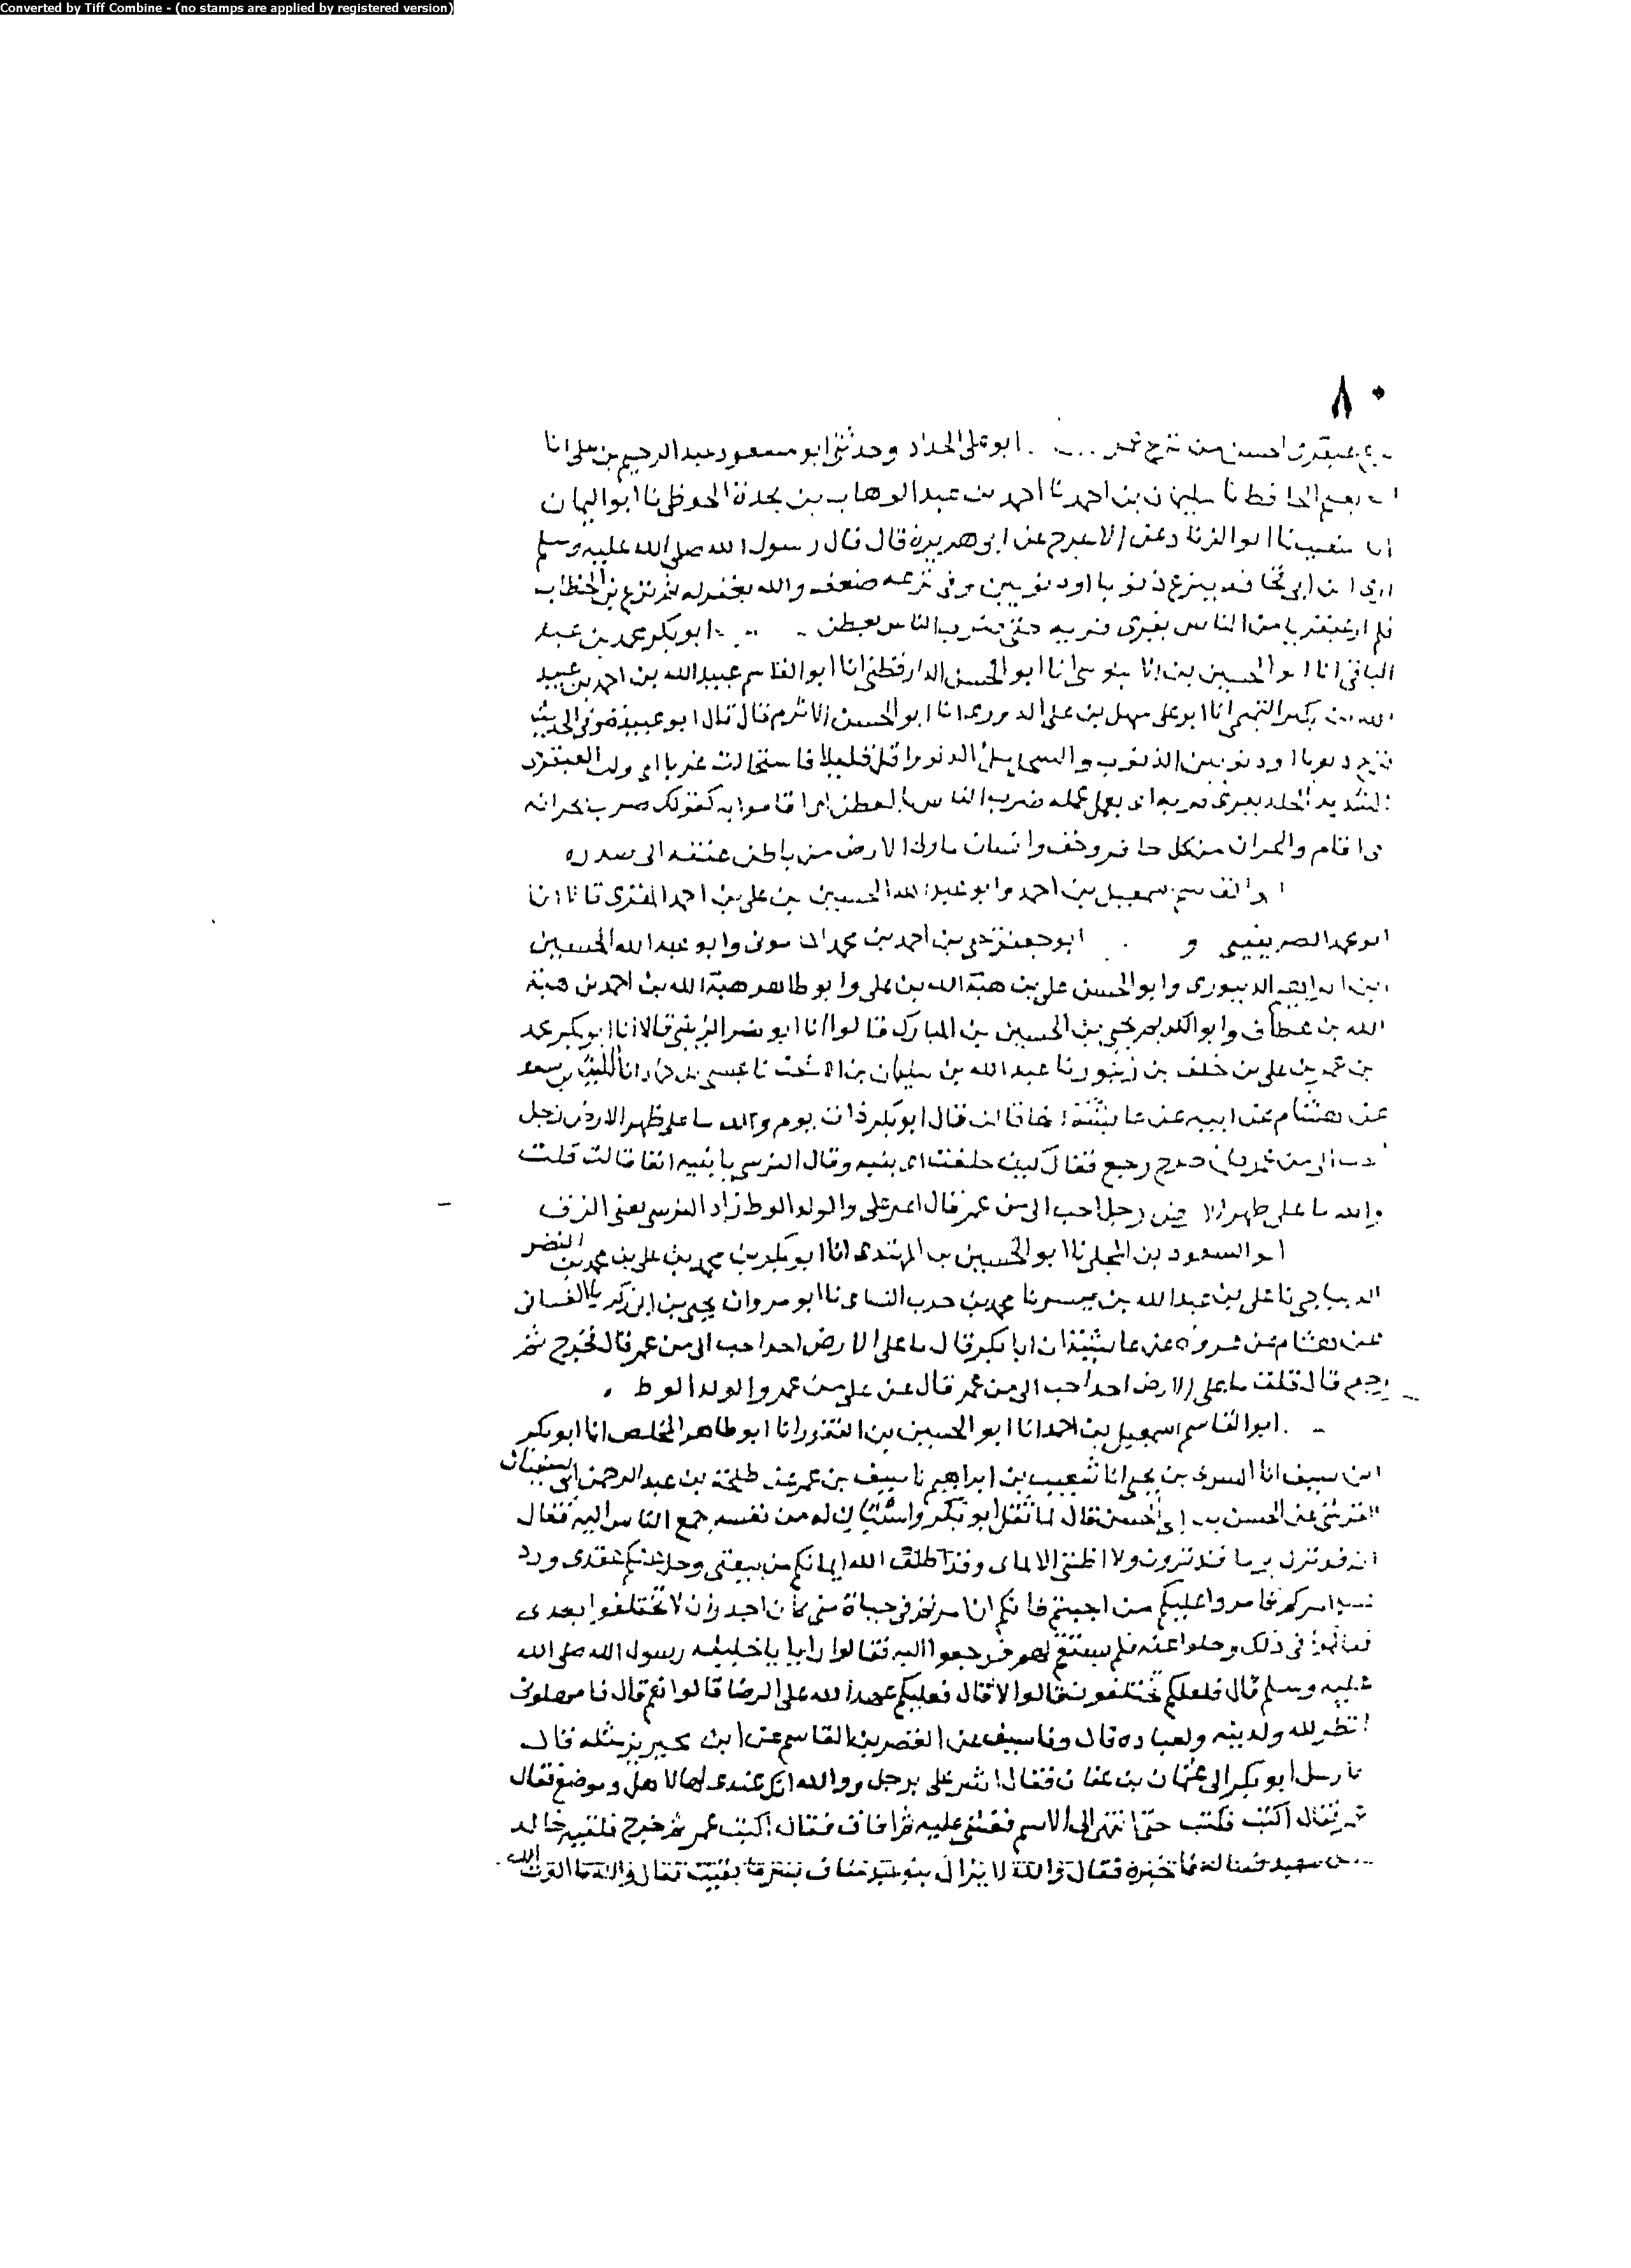 Converted by Tiff Combine - (no stamps are applied by registered version)
٨٠
عبقرى احسن من نزع عمر ابو على الحداد وحدثنى ابو مسعود عبد الرحيم بن على انا
نعيم الحافظ نا سليمان بن احمد نا احمد بن عبد الوهاب بن نجدة الحوطى نا ابو اليمان
انا شعيب نا ابو الزناد عن الاعرج عن ابى هريرة قال قال رسول الله صلى الله عليه وسلم
ابن ابى قحافه ينزع ذنوبا او ذنوبين وفى نزعه ضعف والله يغفر له ثم نزع بن الخطاب
فلم ار عبقريا من الناس يفرى فريه حتى ضرب الناس بعطن ابو بكر محمد بن عبد
الباقى انا ابو الحسين بن انا ابو الحسن الدارقطنى انا ابو القاسم عبيد الله بن احمد بن عبيد
الله بن بكير التميمى انا ابو على سهل بن على الدورى انا ابو الحسن الاثرم قال قال ابو عبيدة فى الحديث
فنزع ذنوبا او ذنوبين الذنوب والسجل قليلا فاستحالت غربا اى ولت العبقرى
الشديد الجلد يفرى فريه اى يعمل عمله ضرب الناس بالعطن اى اقاموا به كقولك ضرب بجرانه
اذا قام والجران من كل حافر وخف وانسان ما ولى الارض من باطن عنقه الى صدره
ابو القاسم اسمعيل بن احمد وابو عبد الله الحسين بن على بن احمد المقرى قالا انا
ابو محمد الصريفينى و ابو جعفر بن احمد بن محمد وابو عبد الله الحسين
ابن ابراهيم الدينورى وابو الحسن على بن هبة الله بن على وابو طاهر هبة الله بن احمد بن هبة
الله بن عطاف وابو الكرم يحيى بن الحسين بن المبارك قالوا انا ابو نصر الزينبى قالا انا ابو بكر محمد
بن عمر بن على بن خلف بن زنبور نا عبد الله بن سليمان بن الاشعث نا عيسى بن حماد انا الليث بن سعد
عن هشام عن ابيه عن عايشة انها قالت قال ابو بكر ذات يوم والله ما على ظهر الارض رجل
احب الى من عمر فلما خرج رجع فقال كيف حلفت اى بنيه وقال النرسى يا بنيه انفا قالت قلت
والله ما على ظهر الارض رجل احب الى من عمر قال اعز على والولد الوط زاد النرسى يعنى الزق
ابو السعود بن المجلى نا ابو الحسين بن المهتدى انا ابو بكر بن محمد بن على بن محمد بن النضر
الديباجى نا على بن عبد الله بن مبشر نا محمد بن حرب النساى نا ابو مروان يحيى بن ابى زكريا الغسانى
عن هشام عن عروة عن عايشة ان ابا بكر قال ما على الارض احد احب الى من عمر قال فخرج ثم
رجع قال قلت ما على الارض احد احب الى من عمر قال عن على من عمر والولد الوط
ابو القاسم اسمعيل بن احمد انا ابو الحسين بن النقور انا ابو طاهر المخلص انا ابو بكر
ابن سيف انا السرى بن يحيى انا شعيب بن ابراهيم نا سيف بن عمر عن طلحة بن عبد الرحمن ابى سفيان
عن الحسن بن ابى الحسن قال لما ثقل ابو بكر واستبان له من نفسه جمع الناس اليه فقال
انه قد نزل بى ما قد ترون ولا اظننى الا لماى وقد اطلق الله ايمانكم من بيعتى وحل عنكم عقدى ورد
عليكم امركم فامروا عليكم من احببتم فانكم ان امرتم فى حياة منى كان اجدر ان لا تختلفوا بعدى
فقاموا فى ذلك وحلوا عنه فلم يستقم لهم فرجعوا اليه فقالوا يا خليفه رسول الله صلى الله
عليه وسلم قال فلعلكم تختلفون قالوا لا قال فعليكم عهد الله على الرضا قالوا نعم قال فامهلونى
انظر لله ولدينه ولعباده قال ونا سيف عن الغصن بن القاسم عن ابن محيريز مثله قال
فارسل ابو بكر الى عثمان بن عفان فقال اشر على برجل ووالله انك عندى لها لاهل وموضع فقال
عمر فقال اكتب فكتب حتى انتهى الى الاسم فغشى عليه ثم افاق فقال اكتب عمر ثم خرج فلقيه خالد
بن سعيد فساله فاخبره فقال والله لا يزال بنو عبد مناف بقيت فقال والله